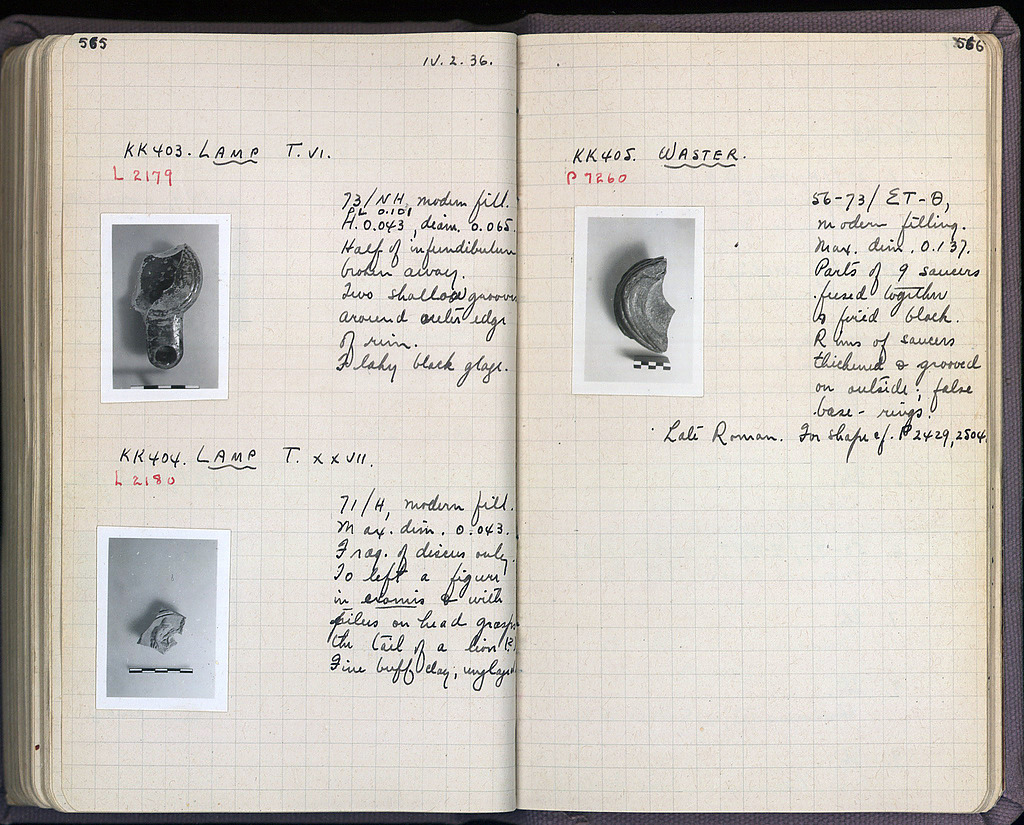 565
IV. 2. 36.
KK403. LAMP T. VI.
L 2179
73/NH, modern fill.
PL 0.101
H. 0.043, diam. 0.065.
Half of infundibulum
broken away.
Two shallow grooves
around outer edge
of rim.
Flaky black glaze.
KK404. LAMP T. XXVII.
L 2180
71/H, modern fill.
Max. dim. 0.043.
Frag. of discus only.
To left a figure
in exomis & with
pilus on head grasps
the tail of a lion (?)
Fine buff clay, unglazed
566
KK405. WASTER.
P 7260
56-73/ ΣΤ-Θ,
modern filling.
Max. dim. 0.137.
Parts of 9 saucers
fused together
& fired black.
Rims of saucers
thickened & grooved
on outside; false
base-rings.
Late Roman. For shape cf. P 2429, 2504.